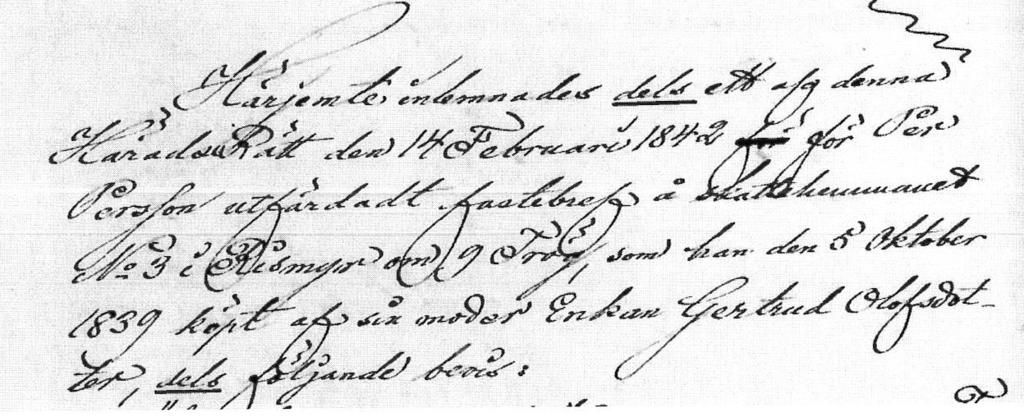 Härjemte inlemnades dels ett afg denna
Härads Rätt den 14 Februari 1842 för för Per
Persson utfärdadt fastebref å skattehemmanet
No 3 i Rismyr om 9 Tråg, som han den 5 Oktober
1839 köpt af sin moder Enkan Gertrud Olofsdot-
ter, dels följande bevis: